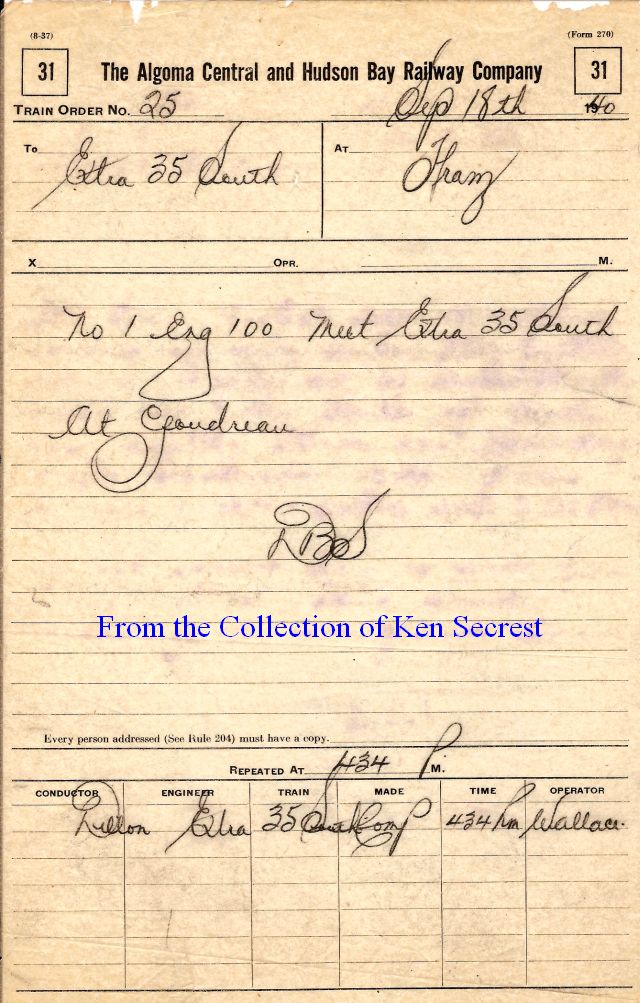 (8-37) (Form 270)
31 The Algoma Central and Hudson Bay Railway Company 31
TRAIN ORDER No. 25 Sep 18th 1940
To Extra 35 South AT Franz
X OPR. M.
No 1 Eng 100 Meet Extra 35 South
At Goudreau
From the Collection of Ken Secrest
Every person addressed (See Rule 204) must have a copy.
REPEATED AT 434 P. M.
CONDUCTOR ENGINEER TRAIN MADE TIME OPERATOR
Dillon Extra 35 South Comp 434 Pm Wallace.